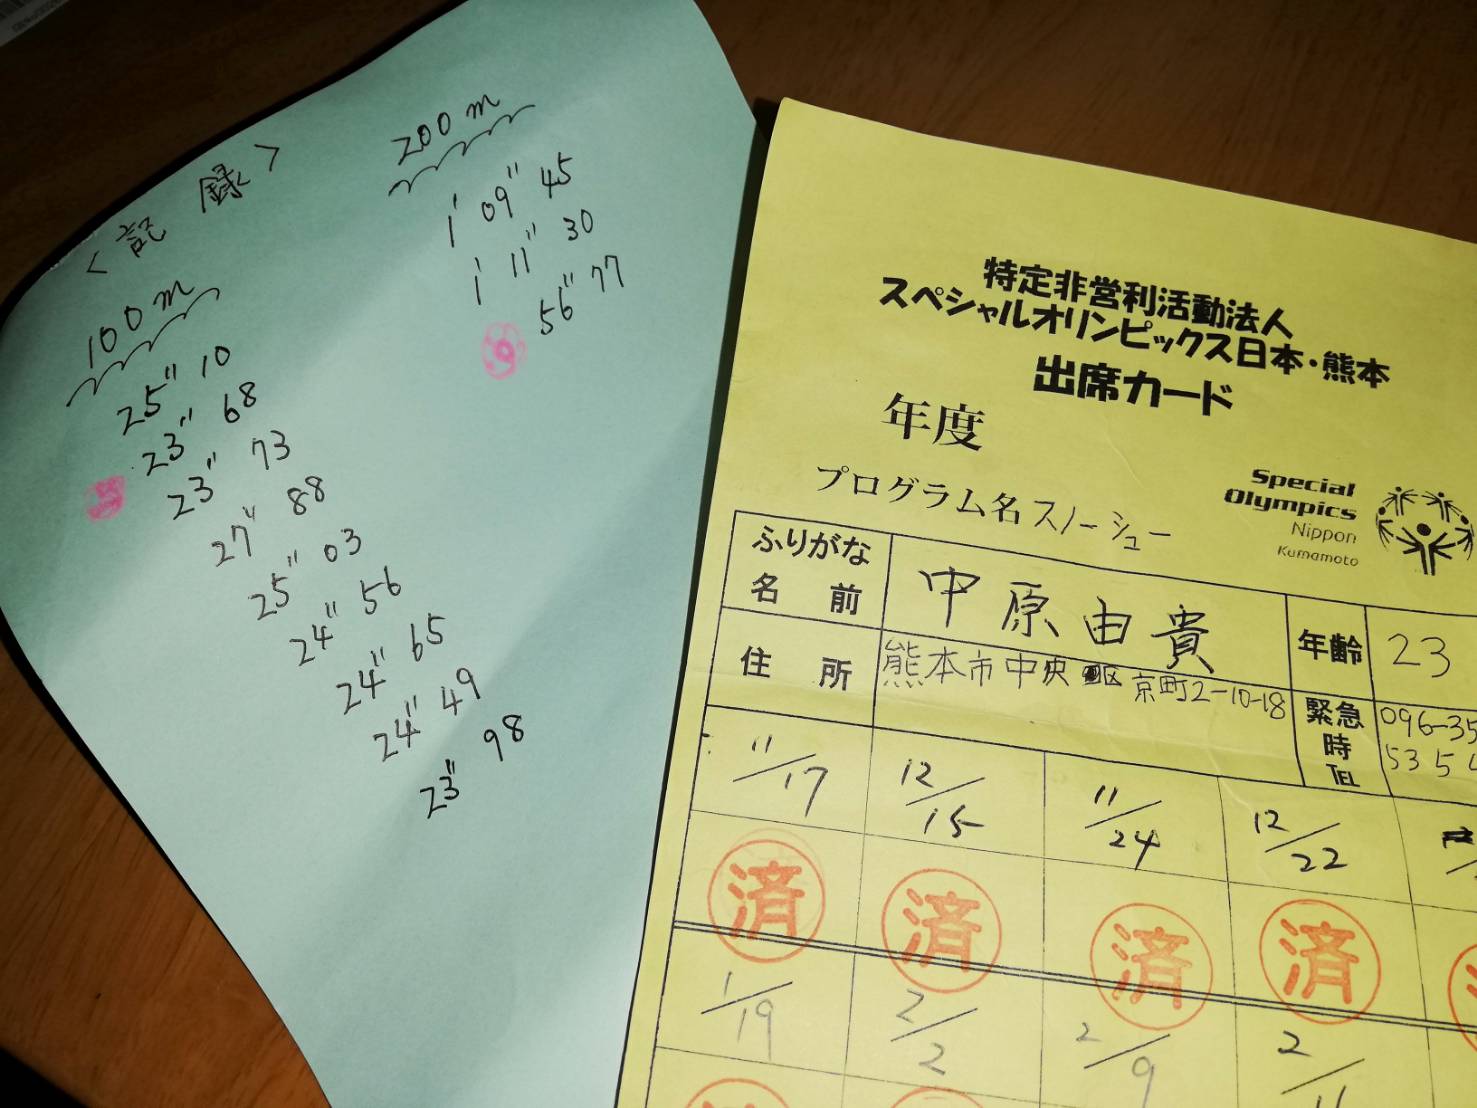 <記 録>
100m
25" 10
23" 68
23" 73
27" 88
25" 03
24" 56
24" 65
24" 49
23" 98
200m
1' 09" 45
1' 11" 30
56" 77
特定非営利活動法人
スペシャルオリンピックス日本・熊本
出席カード
年度
プログラム名 スノーシュー
Special
Olympics
Nippon
Kumamoto
ふりがな
名 前
中原由貴
年齢
23
住 所
熊本市中央区京町2-10-18
緊急
時
TEL
096-35
535
11/17
12/15
11/24
12/22
済
済
済
済
1/19
2/2
2/9
2/